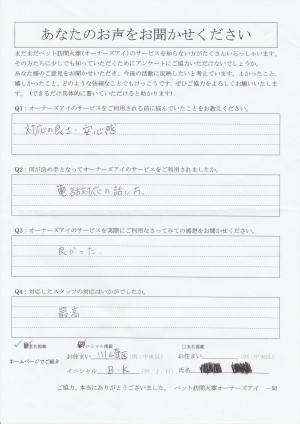 あなたのお声をお聞かせください
まだまだペット訪問火葬(オーナーズアイ)のサービスを知らない方がたくさんいらっしゃいます。
その方たちに少しでも知っていただくためにアンケートにご協力いただけないでしょうか。
あなた様のご意見をお聞かせいただき、今後の活動に反映したいと考えています。よかったこと、
嬉しかったこと、どのような些細なことでもけっこうです。ぜひご協力をよろしくお願いいたしま
す。(できるだけ具体的に書いていただけると助かります)
Q1:オーナーズアイのサービスをご利用される前に悩んでいたことをお教えください。
対応の良さ・安心感
Q2:何が決め手となってオーナーズアイのサービスをご利用されましたか。
電話対応の話し方
Q3:オーナーズアイのサービスを実際にご利用なさってみての感想をお聞かせください。
良かった
Q4:対応したスタッフの対応はいかがでしたか。
最高
イニシャル掲載 □実名掲載
ホームページでご紹介 お住まい (例:中央区) お住まい (例:中央区)
イニシャル B・K 氏名
ご協力、本当にありがとうございました。 ペット訪問火葬オーナーズアイ 一同